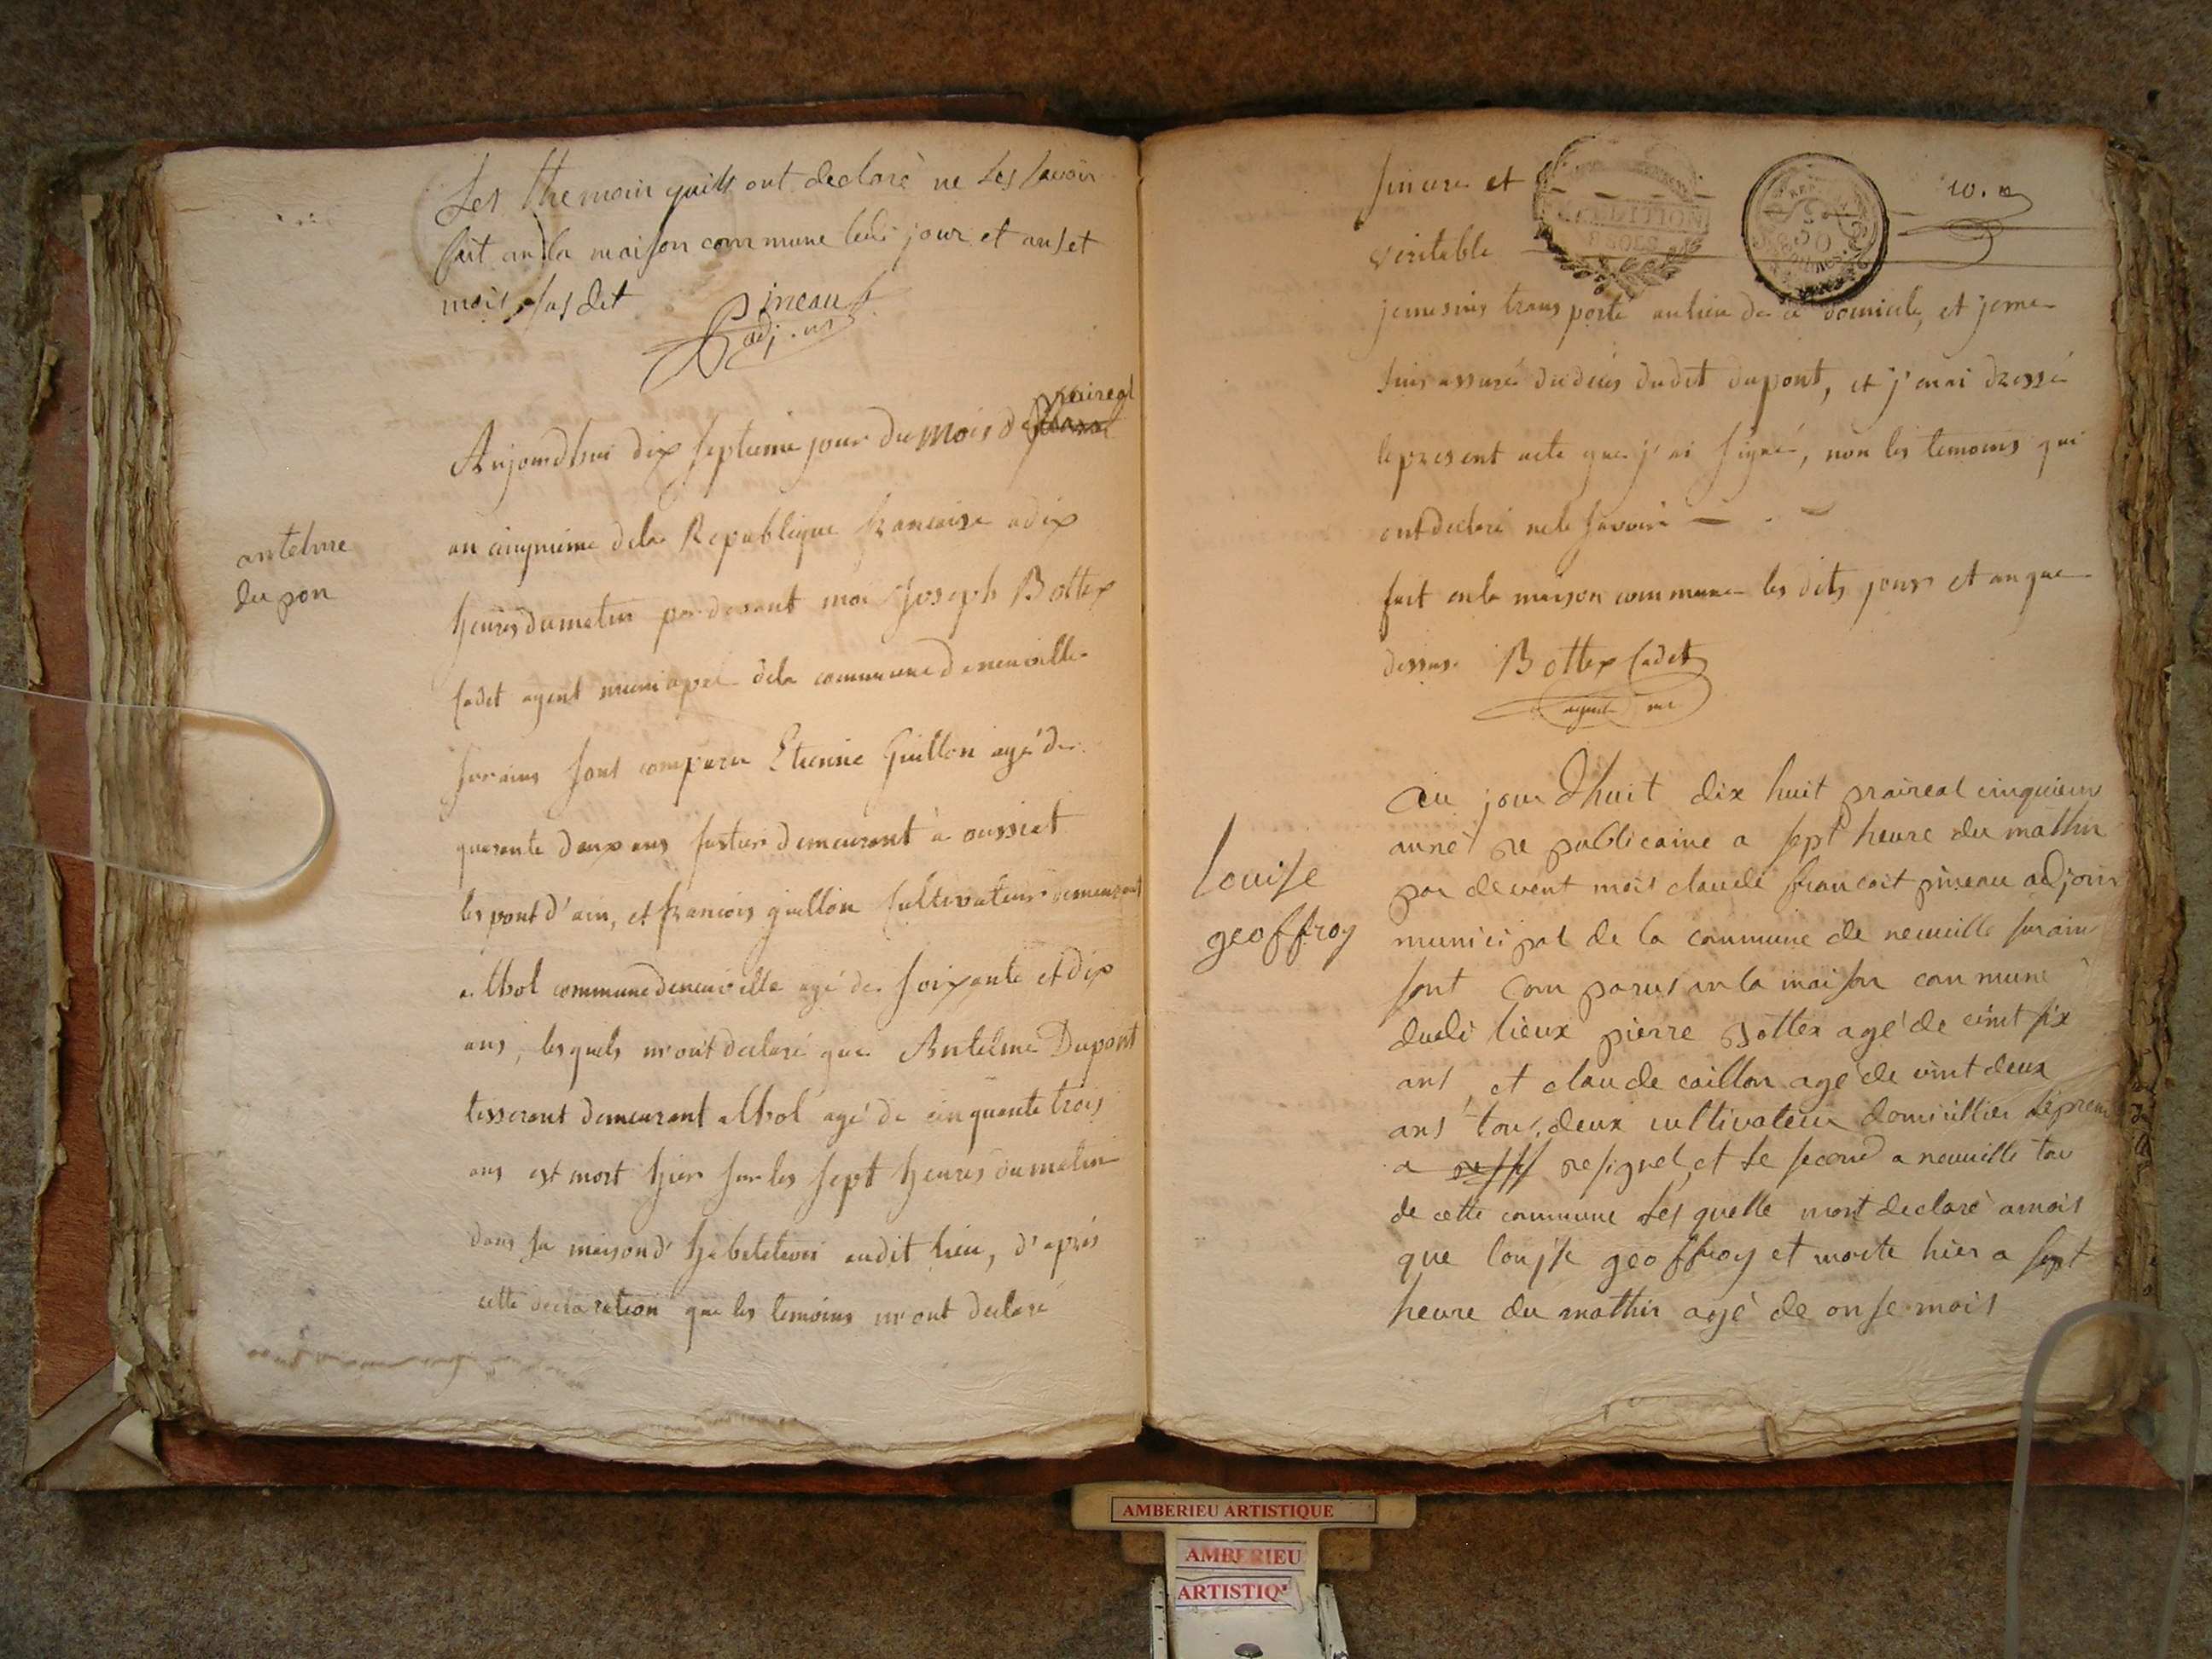 Les themoin quils ont declarè ne Les savoir
fait an la maison commune led. jour et an et
mois susdit Pineau
adj.
praireal
Aujourdhui dix septieme jour du mois de
antelme
du pon
an cinquieme dela Republique francaise a dix
heures dumatin par devant moi Joseph Bottex
Cadet agent municipal dela commune deneuville
sur ains sont comparu Etienne Guillon agé de
quarante deux ans demeurant à oussiat
les pont d'ain, et francois guillon Cultivateur demeurant
a thol commune deneuville agé de soixante et dix
ans, les quels m'ont declaré que Antelme Dupont
tisserant demeurant a thol agé de cinquante trois
ans est mort hier sur les sept heures du matin
dans sa maison d'habitation audit lieu, d'après
cette declaration que les temoins m'ont declaré
sincere et
veritable
jemesuis transporté aulieu de ce domicile, et jeme
suis assuré dudécès dudit dupont, et j'en ai dressé
lepresent acte que j'ai signé, non les temoins qui
ont declaré nele savoir
fait enla maison commune les dits jours et an que
dessus Bottex Cadet
agent mu
louise
geoffroy
au jour dhuit dix huit praireal cinquieme
anné re publicaine a sept heure du mathin
par devent mois claude francoit pineau adjoin
municipal de la commune de neuville surain
sont com parus an la maison commune
dudi lieux pierre Bottex agé de vint six
ans, et claude caillon agé de vint deux
ans tous deux cultivateur domicillier le prem
a resignel et le second a neuville tou
de cette commune Les quelle mont declaré amois
que louise geoffroy et morte hier a sept
heure du mathin agé de onse mois
AMBERIEU ARTISTIQUE
AMBERIEU
ARTISTIQ